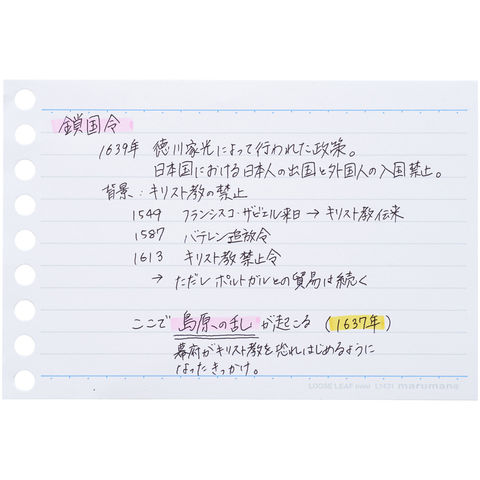 鎖国令
1639年 徳川家光によって行われた政策。
日本国における日本人の出国と外国人の入国禁止。
背景：キリスト教の禁止
1549 フランシスコ・ザビエル来日 → キリスト教伝来
1587 バテレン追放令
1613 キリスト教禁止令
→ ただし ポルトガルとの貿易は続く
ここで 島原の乱 が起こる (1637年)
幕府がキリスト教を恐れはじめるように
なったきっかけ。
LOOSE LEAF mini L1431 maruman